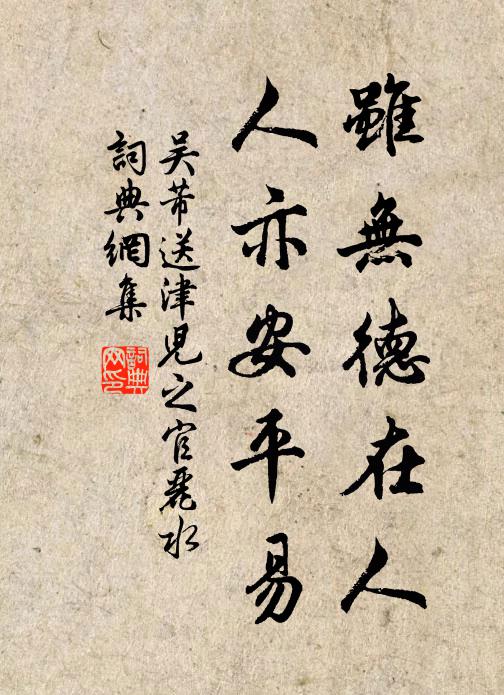 雖無德在人
人亦安平易
吴芾送津兒之官麗水
詞典網集
詞典網印